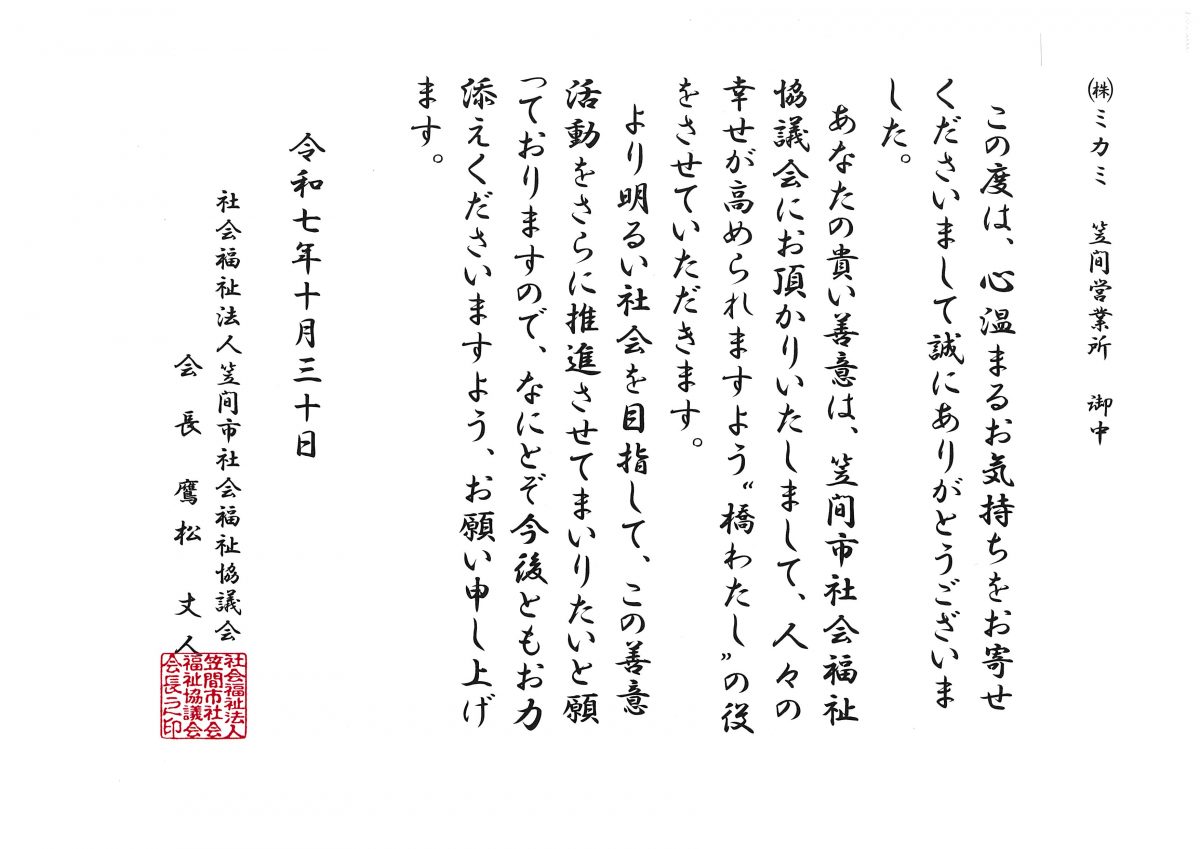 ㈱ミカミ 笠間営業所 御中
この度は、心温まるお気持ちをお寄せ
くださいまして誠にありがとうございま
した。
あなたの貴い善意は、笠間市社会福祉
協議会にお頂かりいたしまして、人々の
幸せが高められますよう“橋わたし”の役
をさせていただきます。
より明るい社会を目指して、この善意
活動をさらに推進させてまいりたいと願
っておりますので、なにとぞ今後ともお力
添えくださいますよう、お願い申し上げ
ます。
令和七年十月三十日
社会福祉法人笠間市社会福祉協議会
会長 鷹松 丈人
社会福祉法人
笠間市社会
福祉協議会
会長之印